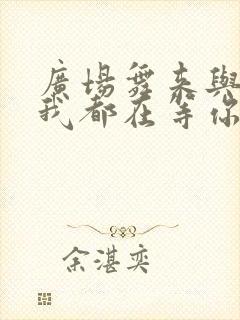 廣場舞來與
我都在等你
余湛奕